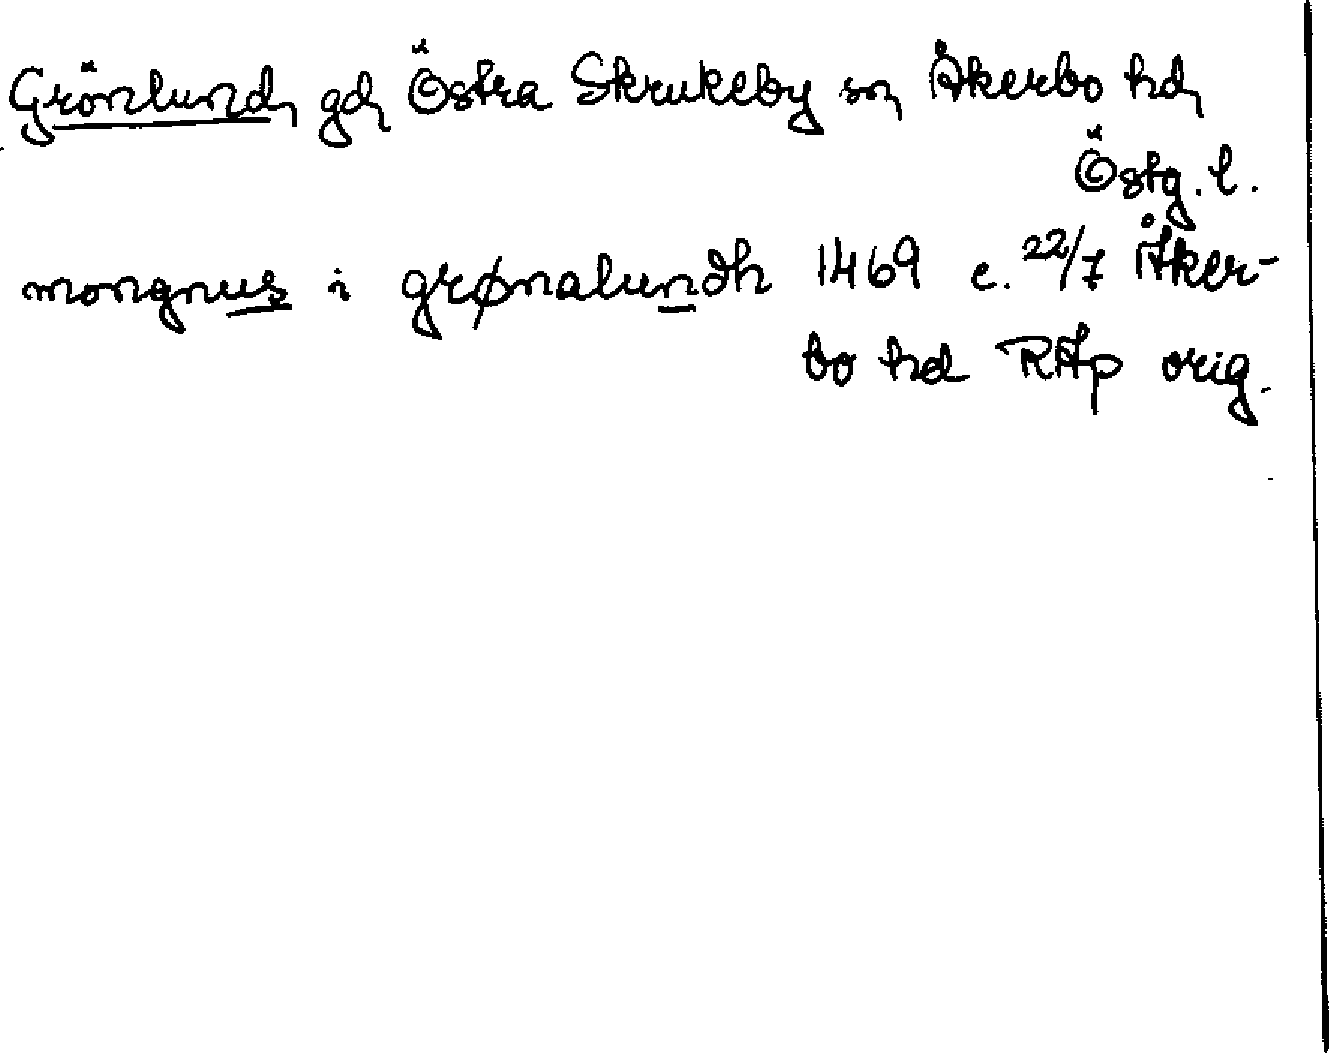 Grönlund, gd, Östra Skrukeby sn, Åkerbo hd,
Östg. l.
mongnus i grønalundh 1469 c. 22/7 Åker-
bo hd RAp orig.